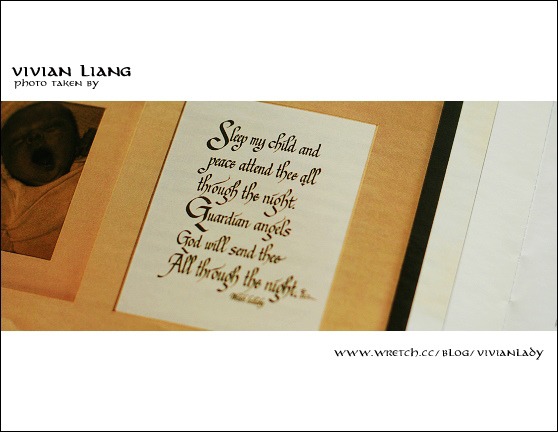 VIVIAN LIANG
PHOTO TAKEN BY
Sleep my child and
peace attend thee all
through the night.
Guardian angels
God will send thee
All through the night.
WWW.WRETCH.CC/BLOG/VIVIANLADY